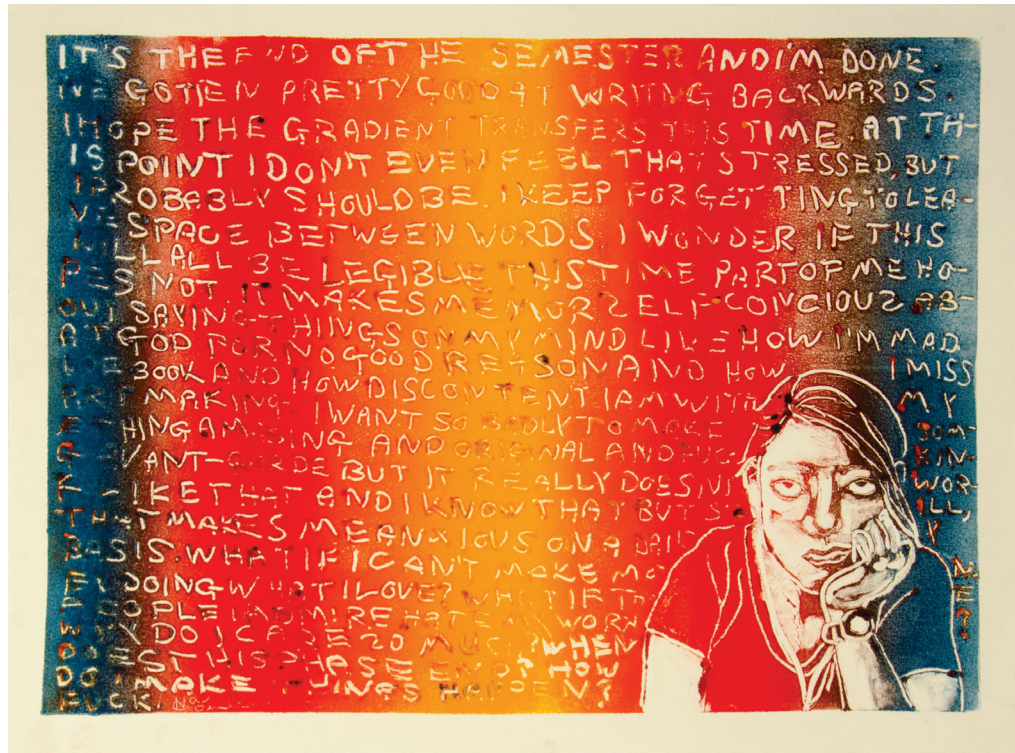 IT'S THE END OF THE SEMESTER AND I'M DONE.
IVE GOTTEN PRETTY GOOD AT WRITING BACKWARDS.
I HOPE THE GRADIENT TRANSFERS THIS TIME. AT TH-
IS POINT I DON'T EVEN FEEL THAT STRESSED, BUT
I PROBABLY SHOULD BE. I KEEP FORGETTING TO LEA-
VE SPACE BETWEEN WORDS. I WONDER IF THIS
WILL ALL BE LEGIBLE THIS TIME PART OF ME HO-
PES NOT. IT MAKES ME MOR SELF CONCIOUS AB-
OUT SAYING THINGS ON MY MIND LIKE HOW I'M MAD
AT GOD FOR NO GOOD REASON AND HOW I MISS
BOOK AND HOW DISCONTENT I AM WITH MY
ART MAKING. I WANT SO BADLY TO MAKE SOM-
ETHING AMAZING AND ORIGINAL AND KIN-
G AVANT-GARDE BUT IT REALLY DOESN'T WOR-
K LIKE THAT AND I KNOW THAT BUT STILL,
THAT MAKES ME ANXIOUS ON A DAILY
BASIS. WHAT IF I CAN'T MAKE MON
EY DOING WHAT I LOVE? WHAT IF THE
PEOPLE I ADMIRE HATE MY WORK?
WHY DO I CARE SO MUCH? WHEN
DOES THIS PHASE END? HOW
DO I MAKE THINGS HAPPEN?
FUCK.